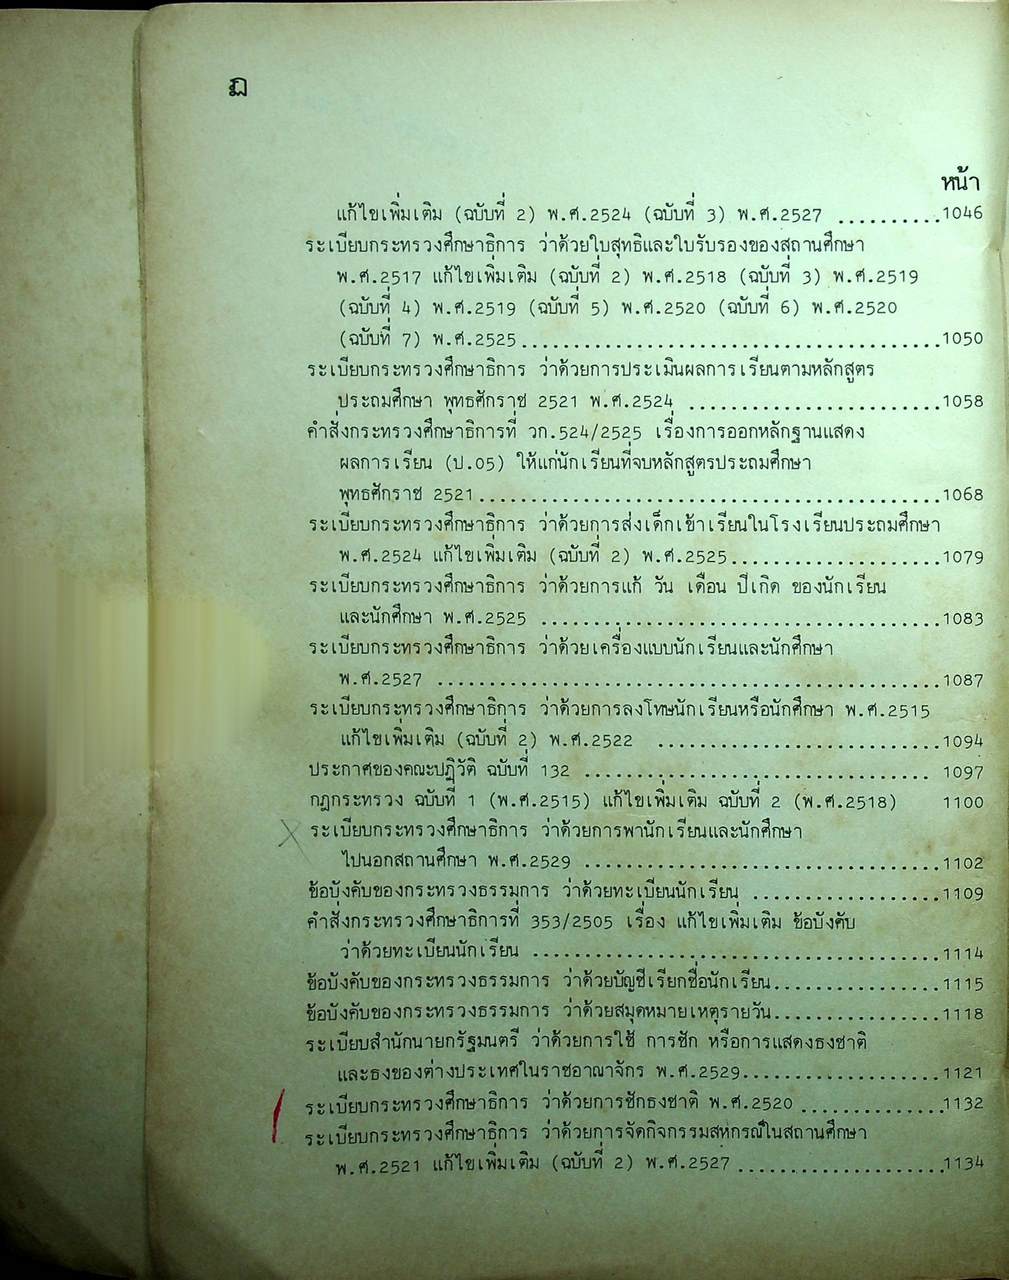 ฏ
หน้า
แก้ไขเพิ่มเติม (ฉบับที่ 2) พ.ศ.2524 (ฉบับที่ 3) พ.ศ.2527 ..........1046
ระเบียบกระทรวงศึกษาธิการ ว่าด้วยใบสุทธิและใบรับรองของสถานศึกษา
พ.ศ.2517 แก้ไขเพิ่มเติม (ฉบับที่ 2) พ.ศ.2518 (ฉบับที่ 3) พ.ศ.2519
(ฉบับที่ 4) พ.ศ.2519 (ฉบับที่ 5) พ.ศ.2520 (ฉบับที่ 6) พ.ศ.2520
(ฉบับที่ 7) พ.ศ.2525........................................1050
ระเบียบกระทรวงศึกษาธิการ ว่าด้วยการประเมินผลการเรียนตามหลักสูตร
ประถมศึกษา พุทธศักราช 2521 พ.ศ.2524 ........................1058
คำสั่งกระทรวงศึกษาธิการที่ วก.524/2525 เรื่องการออกหลักฐานแสดง
ผลการเรียน (ป.05) ให้แก่นักเรียนที่จบหลักสูตรประถมศึกษา
พุทธศักราช 2521............................................1068
ระเบียบกระทรวงศึกษาธิการ ว่าด้วยการส่งเด็กเข้าเรียนในโรงเรียนประถมศึกษา
พ.ศ.2524 แก้ไขเพิ่มเติม (ฉบับที่ 2) พ.ศ.2525....................1079
ระเบียบกระทรวงศึกษาธิการ ว่าด้วยการแก้ วัน เดือน ปีเกิด ของนักเรียน
และนักศึกษา พ.ศ.2525 ......................................1083
ระเบียบกระทรวงศึกษาธิการ ว่าด้วยเครื่องแบบนักเรียนและนักศึกษา
พ.ศ.2527 ................................................1087
ระเบียบกระทรวงศึกษาธิการ ว่าด้วยการลงโทษนักเรียนหรือนักศึกษา พ.ศ.2515
แก้ไขเพิ่มเติม (ฉบับที่ 2) พ.ศ.2522 ...........................1094
ประกาศของคณะปฏิวัติ ฉบับที่ 132 ................................. 1097
กฎกระทรวง ฉบับที่ 1 (พ.ศ.2515) แก้ไขเพิ่มเติม ฉบับที่ 2 (พ.ศ.2518) 1100
ระเบียบกระทรวงศึกษาธิการ ว่าด้วยการพานักเรียนและนักศึกษา
ไปนอกสถานศึกษา พ.ศ.2529 ..................................1102
ข้อบังคับของกระทรวงธรรมการ ว่าด้วยทะเบียนนักเรียน ..................1109
คำสั่งกระทรวงศึกษาธิการที่ 353/2505 เรื่อง แก้ไขเพิ่มเติม ข้อบังคับ
ว่าด้วยทะเบียนนักเรียน .......................................1114
ข้อบังคับของกระทรวงธรรมการ ว่าด้วยบัญชีเรียกชื่อนักเรียน................1115
ข้อบังคับของกระทรวงธรรมการ ว่าด้วยสมุดหมายเหตุรายวัน................1118
ระเบียบสำนักนายกรัฐมนตรี ว่าด้วยการใช้ การชัก หรือการแสดงธงชาติ
และธงของต่างประเทศในราชอาณาจักร พ.ศ.2529...................1121
ระเบียบกระทรวงศึกษาธิการ ว่าด้วยการชักธงชาติ พ.ศ.2520 ..............1132
ระเบียบกระทรวงศึกษาธิการ ว่าด้วยการจัดกิจกรรมสหกรณ์ในสถานศึกษา
พ.ศ.2521 แก้ไขเพิ่มเติม (ฉบับที่ 2) พ.ศ.2527 ....................1134